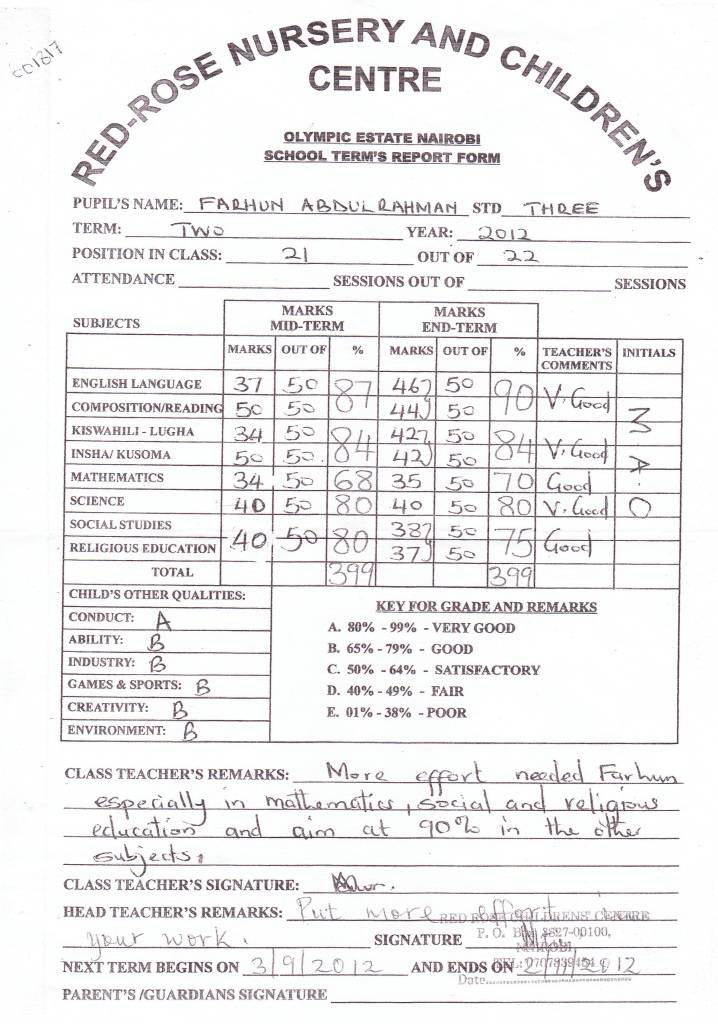 001317
RED-ROSE NURSERY AND CHILDREN'S
CENTRE
OLYMPIC ESTATE NAIROBI
SCHOOL TERM'S REPORT FORM
PUPIL'S NAME: FARHUN ABDULRAHMAN STD THREE
TERM: TWO YEAR: 2012
POSITION IN CLASS: 21 OUT OF 22
ATTENDANCE SESSIONS OUT OF SESSIONS
SUBJECTS MARKS MID-TERM MARKS END-TERM
MARKS OUT OF % MARKS OUT OF % TEACHER'S COMMENTS INITIALS
ENGLISH LANGUAGE 37 50 87 46 50 90 V. Good
COMPOSITION/READING 50 50 44 50
KISWAHILI - LUGHA 34 50 84 42 50 84 V. Good
INSHA/ KUSOMA 50 50 42 50
MATHEMATICS 34 50 68 35 50 70 Good
SCIENCE 40 50 80 40 50 80 V. Good
SOCIAL STUDIES 40 50 80 38 50 75 Good
RELIGIOUS EDUCATION 37 50
TOTAL 399 399
M.A.O
CHILD'S OTHER QUALITIES:
CONDUCT: A
ABILITY: B
INDUSTRY: B
GAMES & SPORTS: B
CREATIVITY: B
ENVIRONMENT: B
KEY FOR GRADE AND REMARKS
A. 80% - 99% - VERY GOOD
B. 65% - 79% - GOOD
C. 50% - 64% - SATISFACTORY
D. 40% - 49% - FAIR
E. 01% - 38% - POOR
CLASS TEACHER'S REMARKS: More effort needed Farhun
especially in mathematics, social and religious
education and aim at 90% in the other
subjects.
CLASS TEACHER'S SIGNATURE:
HEAD TEACHER'S REMARKS: Put more effort in
your work. SIGNATURE
RED ROSE CHILDRENS CENTRE
P. O. Box 3827-00100,
NAIROBI
TEL:
Date
NEXT TERM BEGINS ON 3/9/2012 AND ENDS ON 2/11/2012
PARENT'S /GUARDIANS SIGNATURE